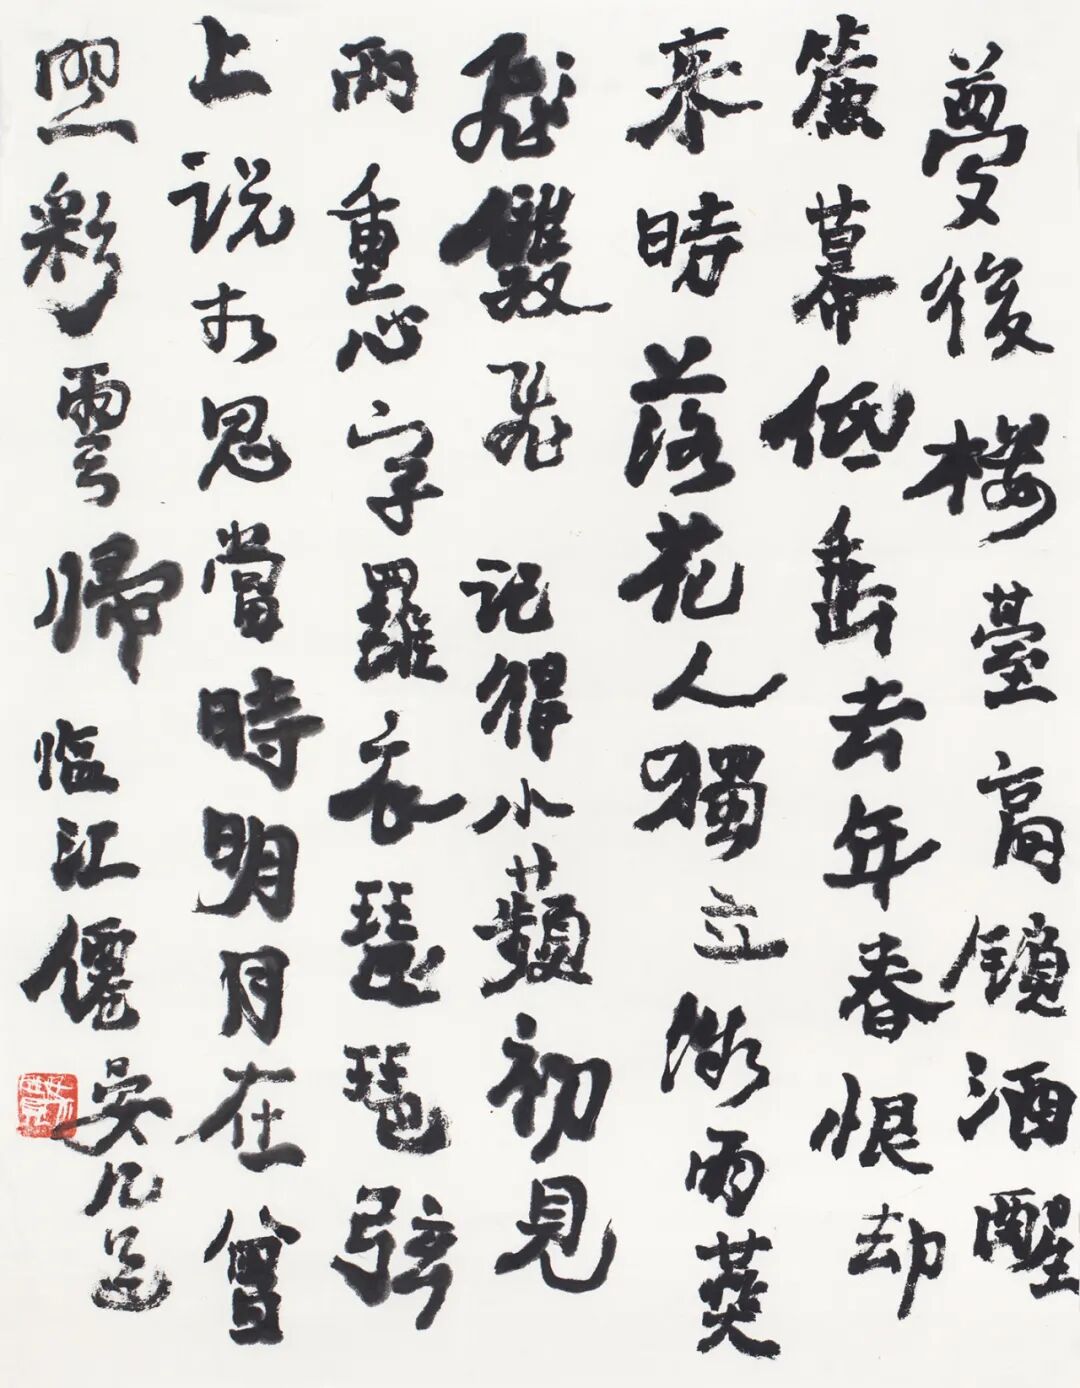 夢後楼臺高鎖酒醒
簾幕低垂去年春恨却
来時落花人獨立微雨燕
飛雙飛 記得小蘋初見
兩重心字羅衣琵琶弦
上説相思當時明月在曾
照彩雲歸 临江僊 晏几道